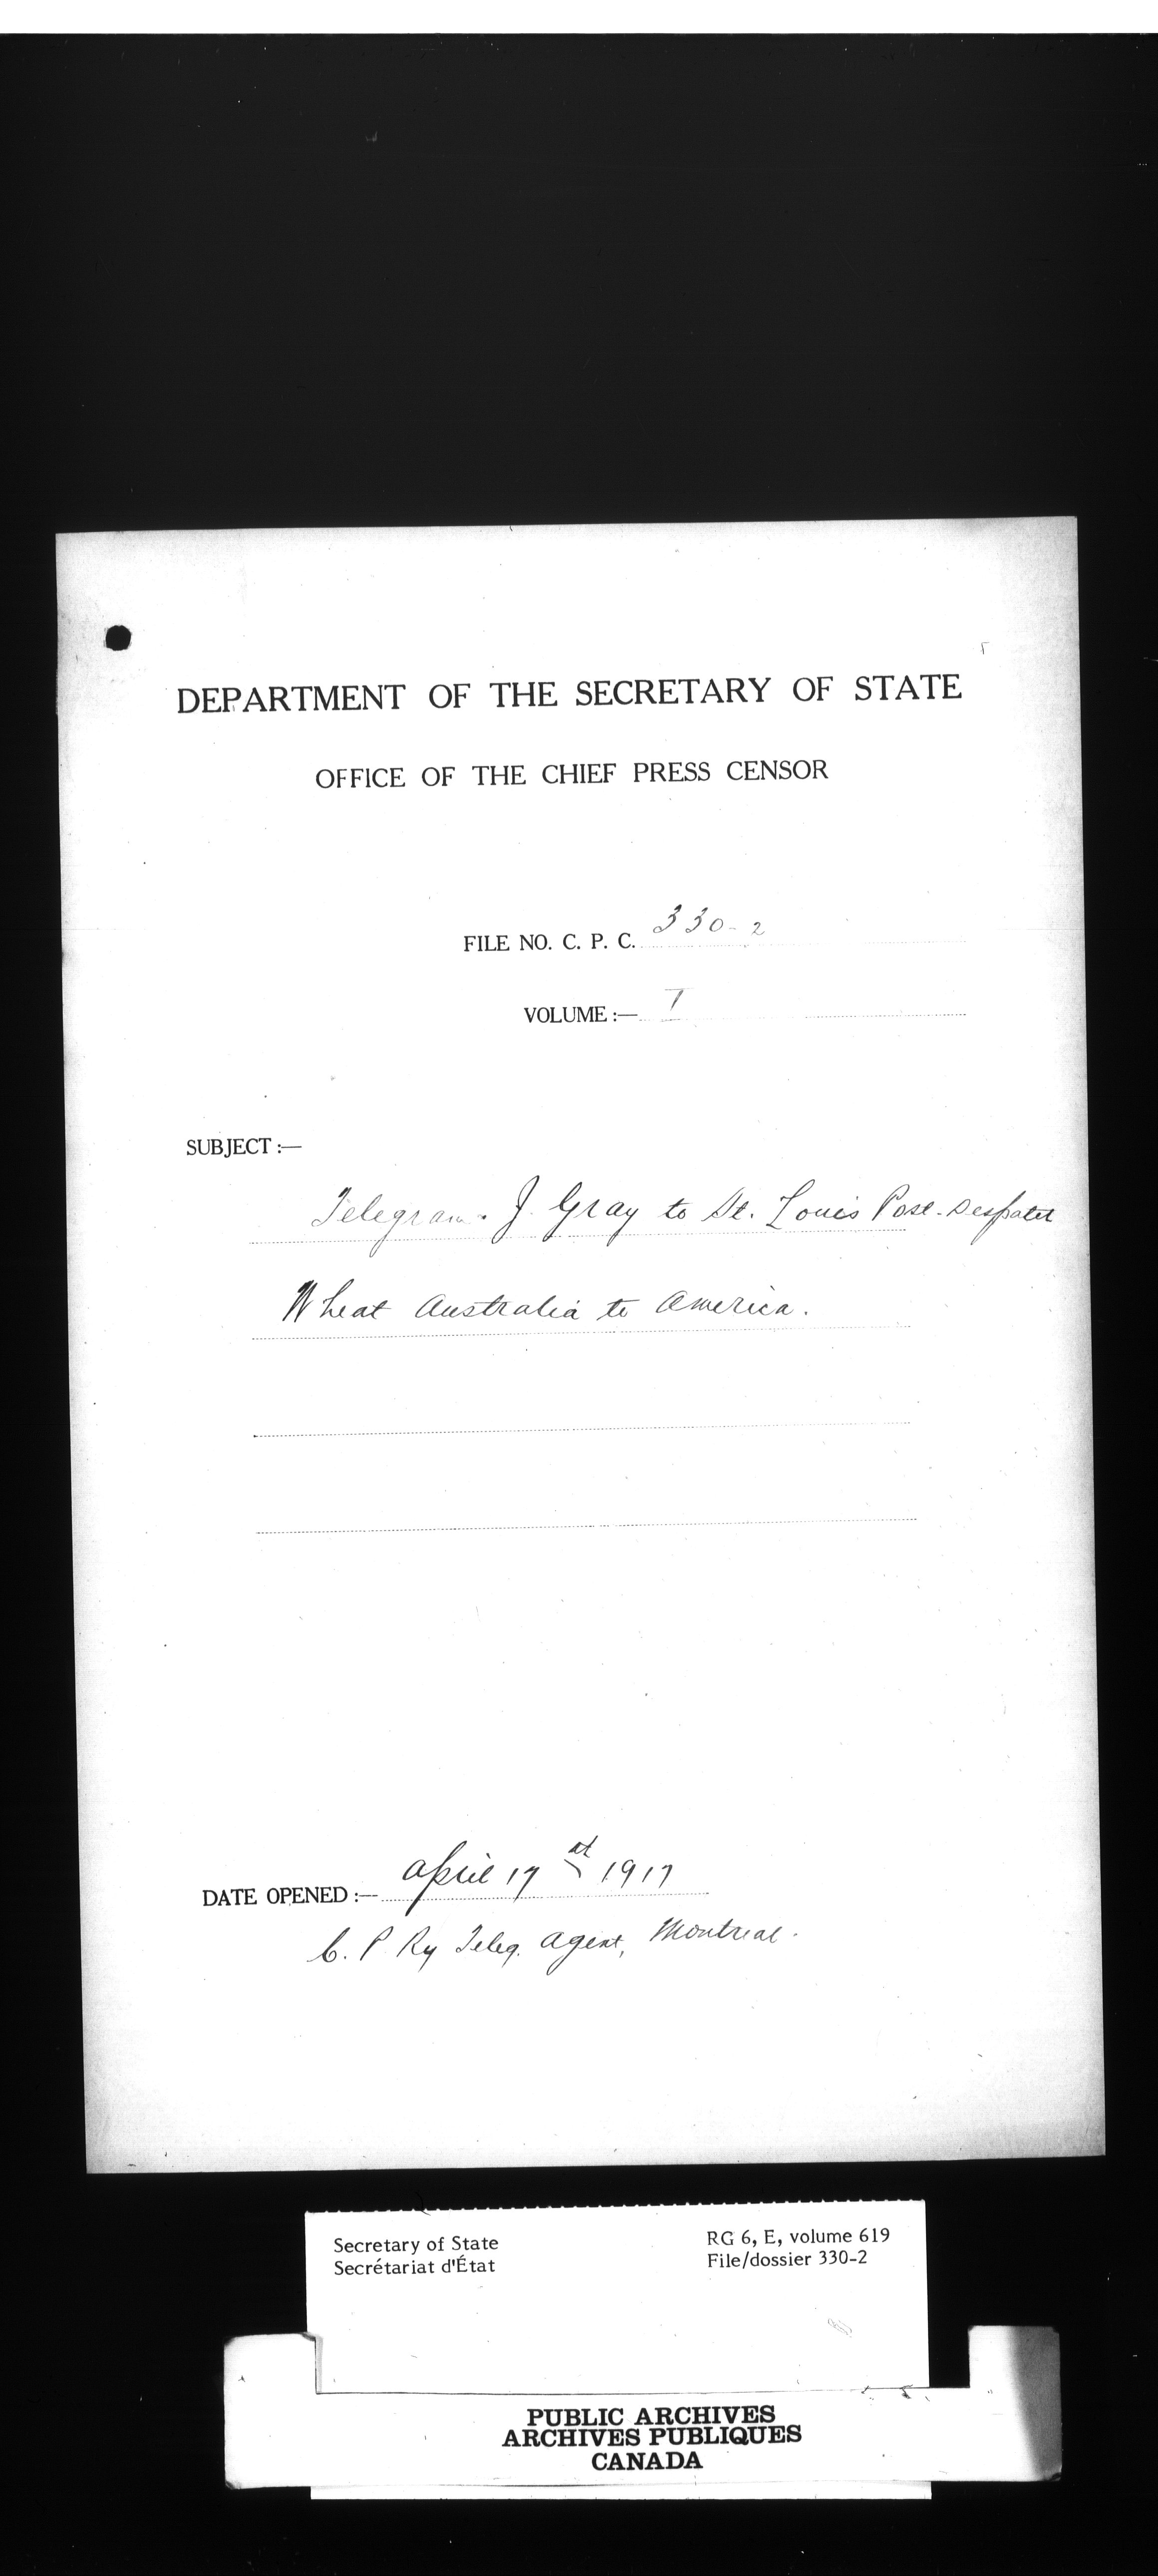 DEPARTMENT OF THE SECRETARY OF STATE
OFFICE OF THE CHIEF PRESS CENSOR
FILE NO. C. P. C. 330-2
VOLUME :— I
SUBJECT :—
Telegram. J. Gray to St. Louis Post-Despatch
Wheat Australia to America.
DATE OPENED :— April 17th 1917
C. P. Ry Teleg. Agent, Montreal.
Secretary of State
Secrétariat d'État
RG 6, E, volume 619
File/dossier 330-2
PUBLIC ARCHIVES
ARCHIVES PUBLIQUES
CANADA